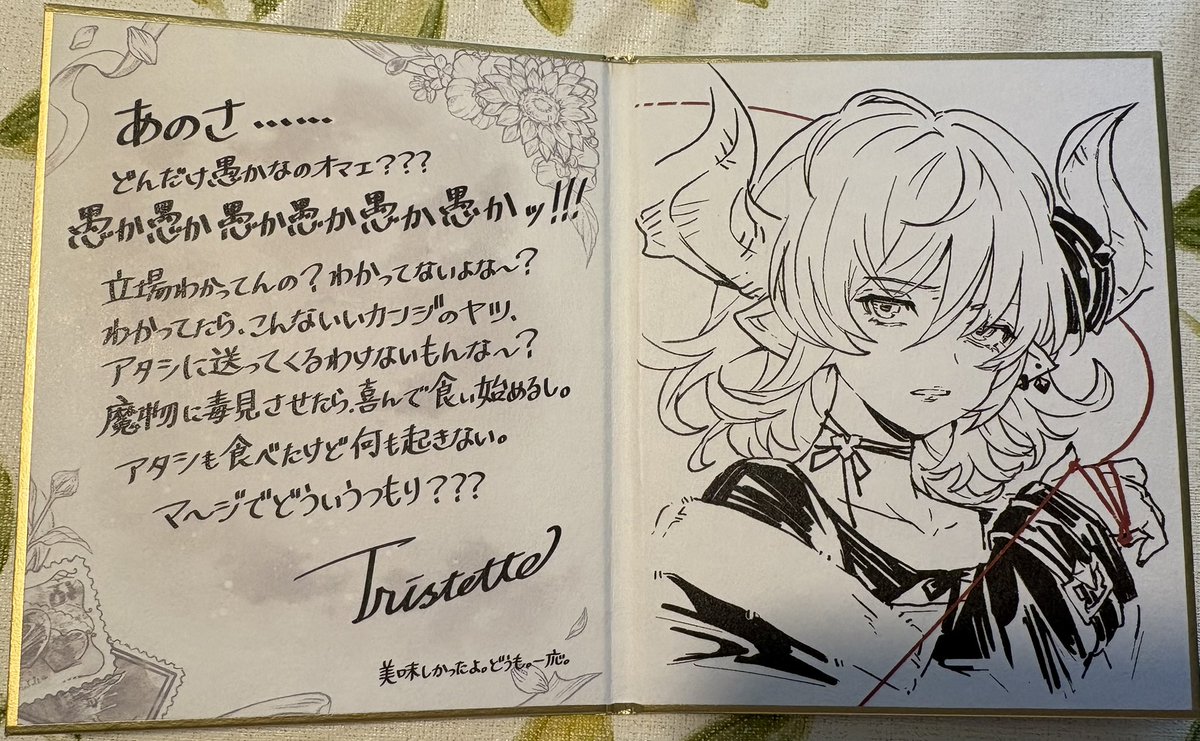 あのさ……
どんだけ愚かなのオマエ???
愚か愚か愚か愚か愚か愚かッ!!!
立場わかってんの?わかってないよな〜?
わかってたら、こんないいカンジのヤツ、
アタシに送ってくるわけないもんな〜?
魔物に毒見させたら、喜んで食い始めるし。
アタシも食べたけど何も起きない。
マ〜ジでどういうつもり???
Tristette
美味しかったよ。どうも。一応。